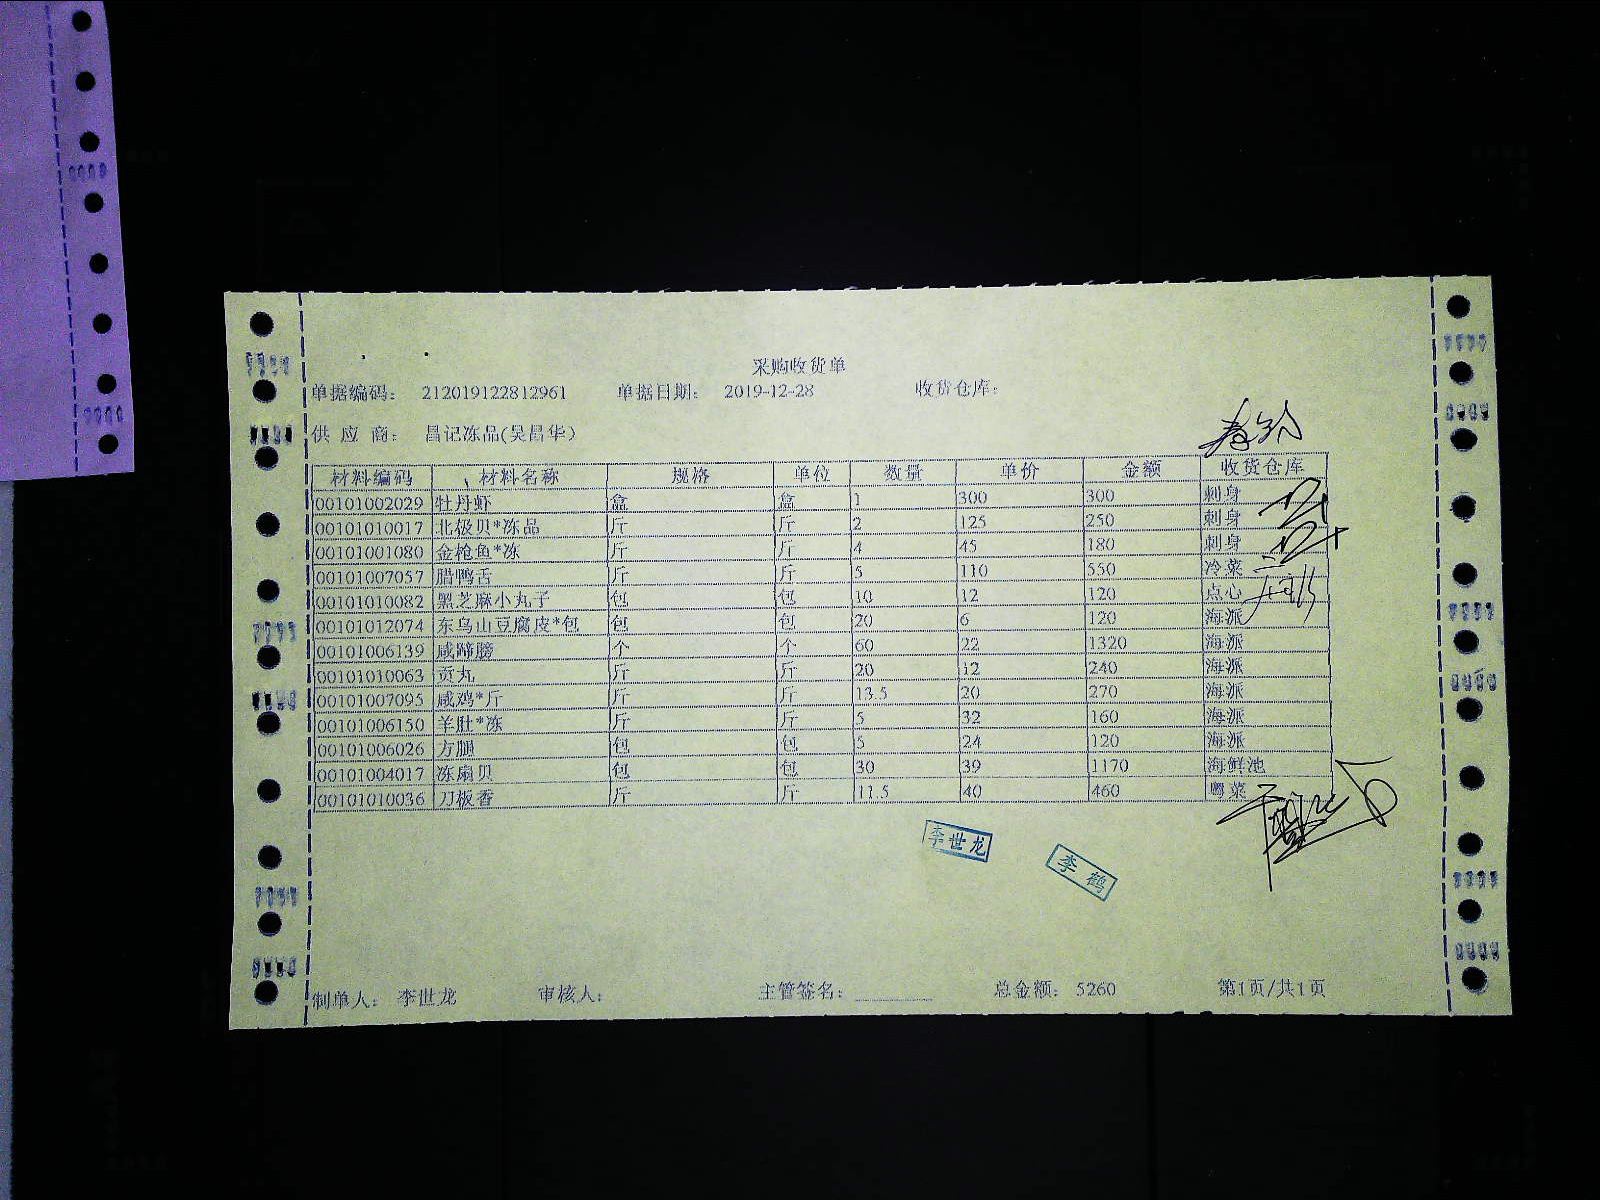 采购收货单
单据编码： 212019122812961 单据日期： 2019-12-28 收货仓库：
供 应 商： 昌记冻品(吴昌华)
材料编码 材料名称 规格 单位 数量 单价 金额 收货仓库
00101002029 牡丹虾 盒 盒 1 300 300 刺身
00101010017 北极贝*冻品 斤 斤 2 125 250 刺身
00101001080 金枪鱼*冻 斤 斤 4 45 180 刺身
00101007057 腊鸭舌 斤 斤 5 110 550 冷菜
00101010082 黑芝麻小丸子 包 包 10 12 120 点心
00101012074 东乌山豆腐皮*包 包 包 20 6 120 海派
00101006139 咸蹄膀 个 个 60 22 1320 海派
00101010063 贡丸 斤 斤 20 12 240 海派
00101007095 咸鸡*斤 斤 斤 13.5 20 270 海派
00101006150 羊肚*冻 斤 斤 5 32 160 海派
00101006026 方腿 包 包 5 24 120 海派
00101004017 冻扇贝 包 包 30 39 1170 海鲜池
00101010036 刀板香 斤 斤 11.5 40 460 粤菜
李世龙
李鹤
制单人： 李世龙 审核人： 主管签名： 总金额： 5260 第1页/共1页